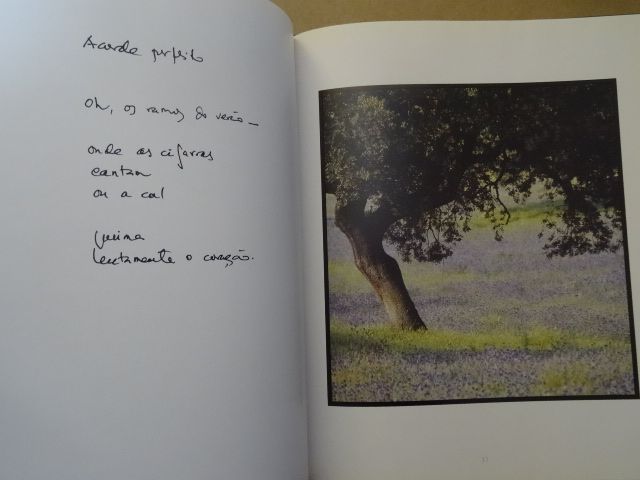 Acorde perfeito
Oh, os ramos do verão —
onde as cigarras
cantam
ou a cal
queima
lentamente o coração.